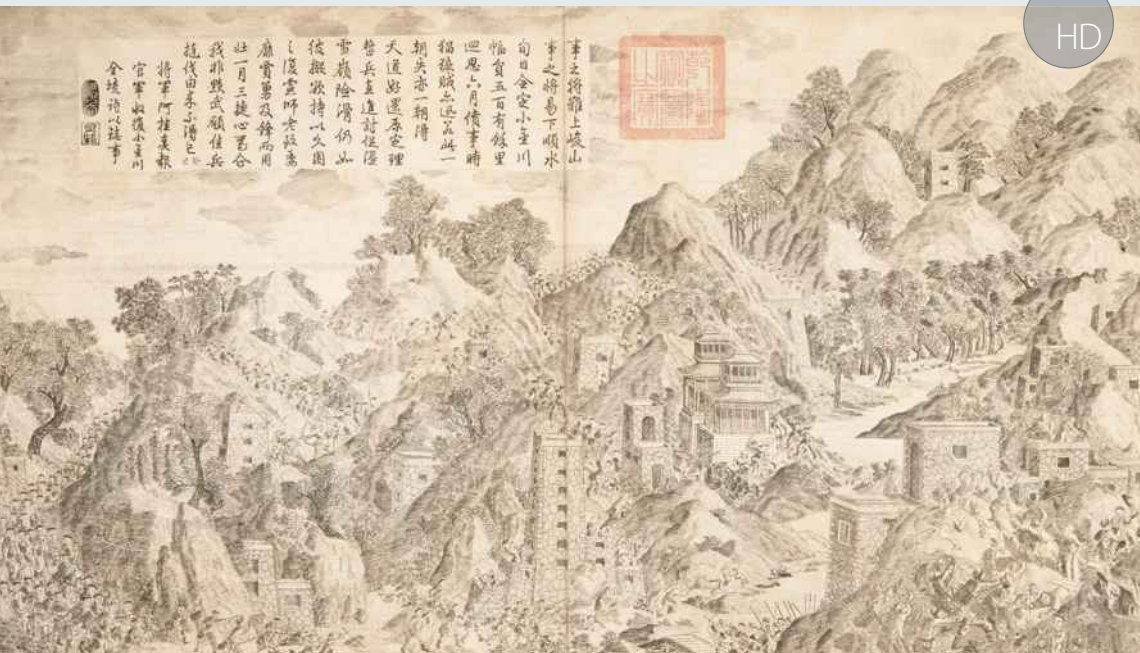 事之將難上峻山
事之將易下順水
旬日全定小金川
幅員五百有餘里
迴思六月僨事時
猖獗賊亦迅若此一
朝失亦一朝得
天道好還原定理
整兵直進討促浸
雪嶺險滑仍如
彼擬欲持以久困
之復慮師老
賈勇及鋒而用
壯一月三捷心
我非黷武願佳兵
撻伐由來不得已
將軍阿桂奏報
官軍收復小金川
全境詩以誌事
HD